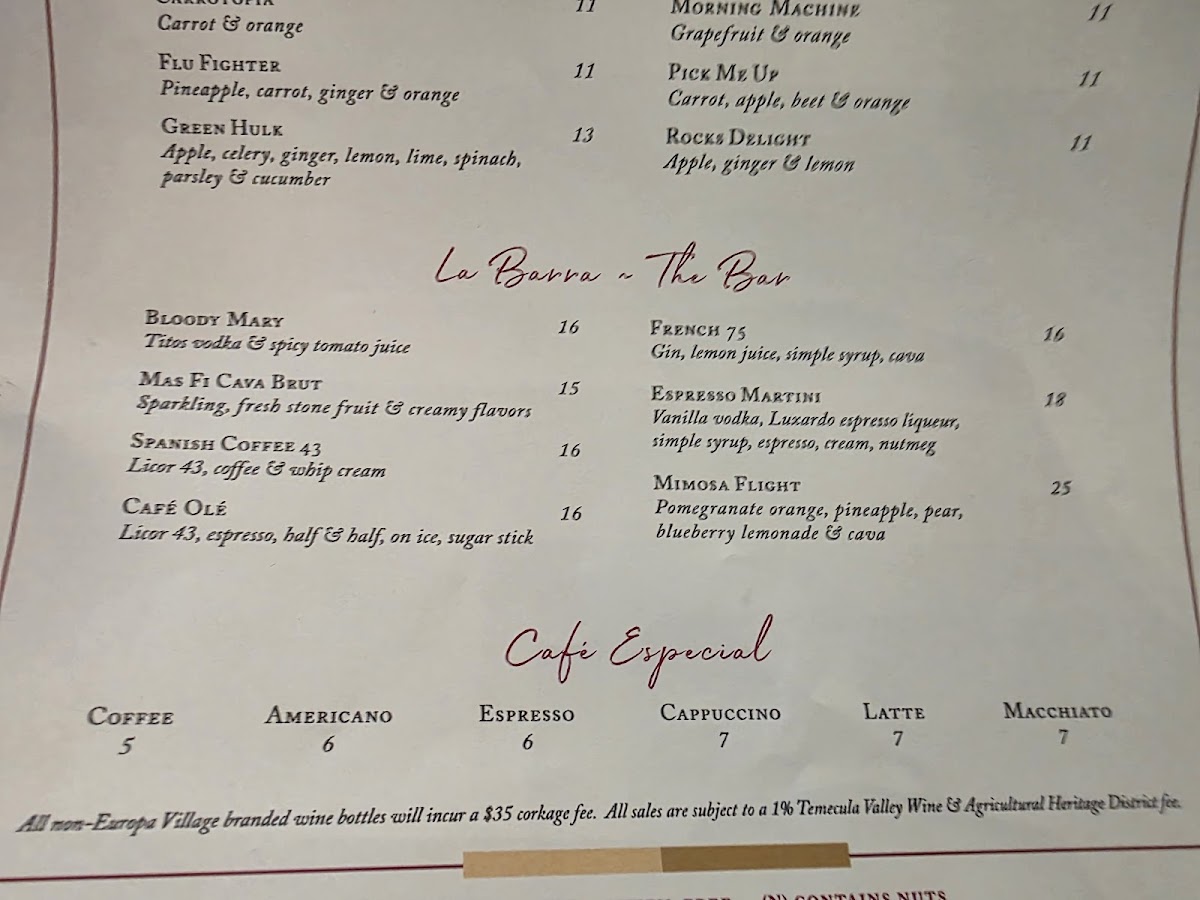 Carrotopia 11
Carrot & orange
Flu Fighter 11
Pineapple, carrot, ginger & orange
Green Hulk 13
Apple, celery, ginger, lemon, lime, spinach,
parsley & cucumber
Morning Machine 11
Grapefruit & orange
Pick Me Up 11
Carrot, apple, beet & orange
Rocks Delight 11
Apple, ginger & lemon
La Barra ~ The Bar
Bloody Mary 16
Titos vodka & spicy tomato juice
Mas Fi Cava Brut 15
Sparkling, fresh stone fruit & creamy flavors
Spanish Coffee 43 16
Licor 43, coffee & whip cream
Café Olé 16
Licor 43, espresso, half & half, on ice, sugar stick
French 75 16
Gin, lemon juice, simple syrup, cava
Espresso Martini 18
Vanilla vodka, Luxardo espresso liqueur,
simple syrup, espresso, cream, nutmeg
Mimosa Flight 25
Pomegranate orange, pineapple, pear,
blueberry lemonade & cava
Café Especial
Coffee Americano Espresso Cappuccino Latte Macchiato
5 6 6 7 7 7
All non-Europa Village branded wine bottles will incur a $35 corkage fee. All sales are subject to a 1% Temecula Valley Wine & Agricultural Heritage District fee.
(N) CONTAINS NUTS